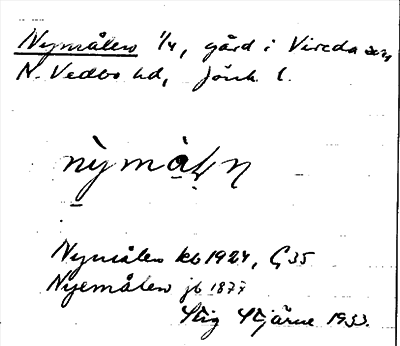 Nymålen 1/4, gård i Vireda sn,
N. Vedbo hd, Jönk. l.
Nymålen kb 1924, G 35
Nyemålen jb 1877
Stig Stjärne 1933.